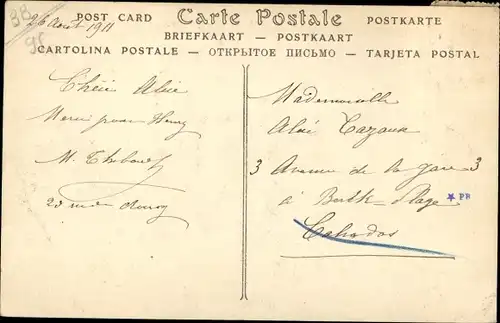 POST CARD Carte Postale POSTKARTE
BRIEFKAART — POSTKAART
CARTOLINA POSTALE — ОТКРЫТОЕ ПИСЬМО — TARJETA POSTAL
26 août 1911
98
Chère Alice
Merci pour Henry
M. Thibault
Mademoiselle
Alice Cazaux
3 Avenue de la gare 3
à Berck-Plage
Calvados
* PB